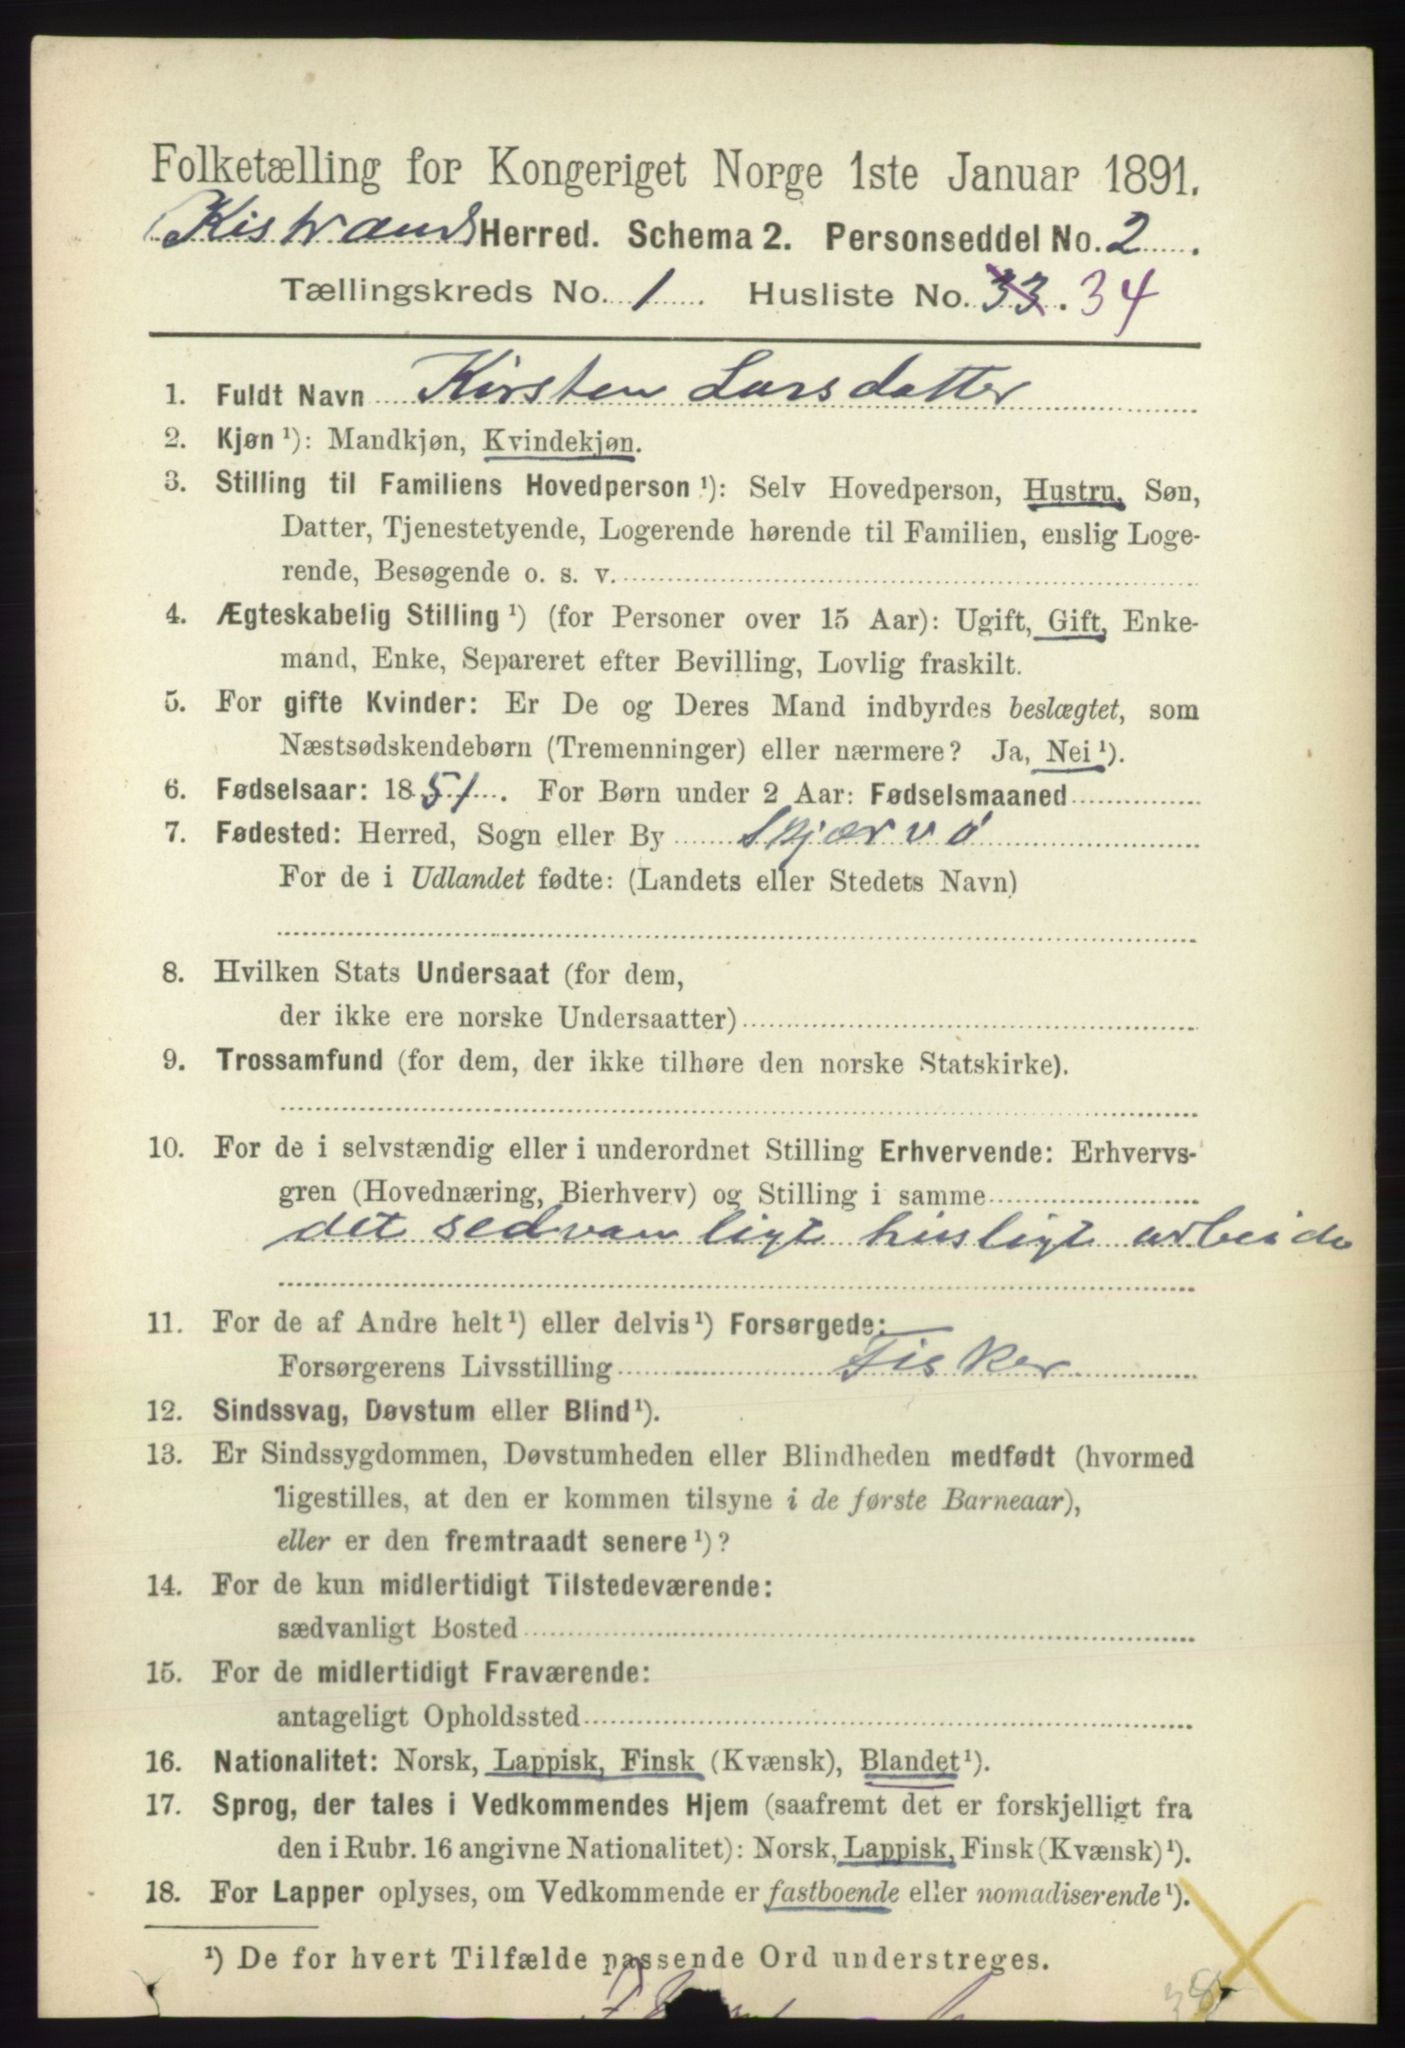 Folketælling for Kongeriget Norge 1ste Januar 1891.
Kistrand Herred. Schema 2. Personseddel No. 2
Tællingskreds No. 1 Husliste No. 33. 34
1. Fuldt Navn Kirsten Larsdatter
2. Kjøn ¹): Mandkjøn, Kvindekjøn.
3. Stilling til Familiens Hovedperson ¹): Selv Hovedperson, Hustru, Søn,
Datter, Tjenestetyende, Logerende hørende til Familien, enslig Loge-
rende, Besøgende o. s. v.
4. Ægteskabelig Stilling ¹) (for Personer over 15 Aar): Ugift, Gift, Enke-
mand, Enke, Separeret efter Bevilling, Lovlig fraskilt.
5. For gifte Kvinder: Er De og Deres Mand indbyrdes beslægtet, som
Næstsødskendebørn (Tremenninger) eller nærmere? Ja, Nei ¹).
6. Fødselsaar: 1851. For Børn under 2 Aar: Fødselsmaaned
7. Fødested: Herred, Sogn eller By Skjærvø
For de i Udlandet fødte: (Landets eller Stedets Navn)
8. Hvilken Stats Undersaat (for dem,
der ikke ere norske Undersaatter)
9. Trossamfund (for dem, der ikke tilhøre den norske Statskirke).
10. For de i selvstændig eller i underordnet Stilling Erhvervende: Erhvervs-
gren (Hovednæring, Bierhverv) og Stilling i samme
det sedvanligt husligt arbeide
11. For de af Andre helt ¹) eller delvis ¹) Forsørgede:
Forsørgerens Livsstilling Fisker
12. Sindssvag, Døvstum eller Blind ¹).
13. Er Sindssygdommen, Døvstumheden eller Blindheden medfødt (hvormed
ligestilles, at den er kommen tilsyne i de første Barneaar),
eller er den fremtraadt senere ¹)?
14. For de kun midlertidigt Tilstedeværende:
sædvanligt Bosted
15. For de midlertidigt Fraværende:
antageligt Opholdssted
16. Nationalitet: Norsk, Lappisk, Finsk (Kvænsk), Blandet ¹).
17. Sprog, der tales i Vedkommendes Hjem (saafremt det er forskjelligt fra
den i Rubr. 16 angivne Nationalitet): Norsk, Lappisk, Finsk (Kvænsk) ¹).
18. For Lapper oplyses, om Vedkommende er fastboende eller nomadiserende ¹).
¹) De for hvert Tilfælde passende Ord understreges.